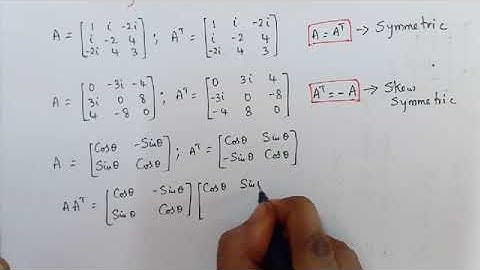 A = [1 i -2i; i -2 4; -2i 4 3] ; Aᵀ = [1 i -2i; i -2 4; -2i 4 3] A = Aᵀ → Symmetric
A = [0 -3i -4; 3i 0 8; 4 -8 0] ; Aᵀ = [0 3i 4; -3i 0 -8; -4 8 0] Aᵀ = -A → Skew Symmetric
A = [Cosθ -Sinθ; Sinθ Cosθ] ; Aᵀ = [Cosθ Sinθ; -Sinθ Cosθ]
AAᵀ = [Cosθ -Sinθ; Sinθ Cosθ] [Cosθ Sin